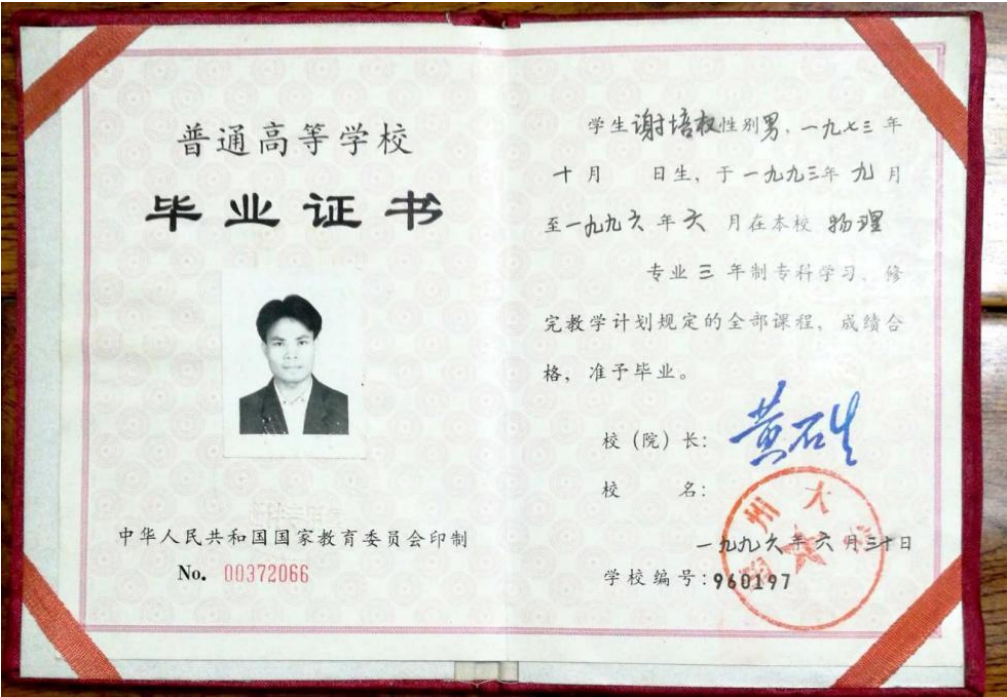 普通高等学校
毕业证书
中华人民共和国国家教育委员会印制
No. 00372066
学生谢培权性别男，一九七三年
十月 日生，于一九九三年九月
至一九九六年六月在本校 物理
专业三年制专科学习，修
完教学计划规定的全部课程，成绩合
格，准予毕业。
校（院）长：黄石生
校 名：
州大
一九九六年六月三十日
学校编号：960197